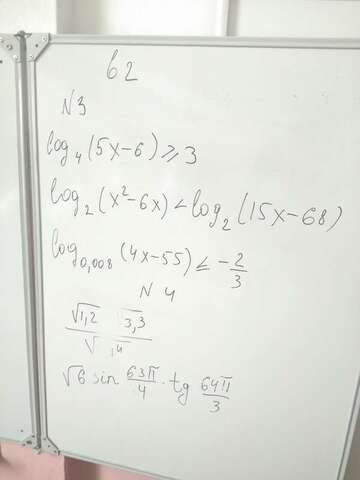 б2
N3
log₄(5x-6)⩾3
log₂(x²-6x)<log₂(15x-68)
log₀,₀₀₈(4x-55)≤-2/3
N4
√1,2 3,3 / √ ,4
√6 sin 63π/4 · tg 64π/3